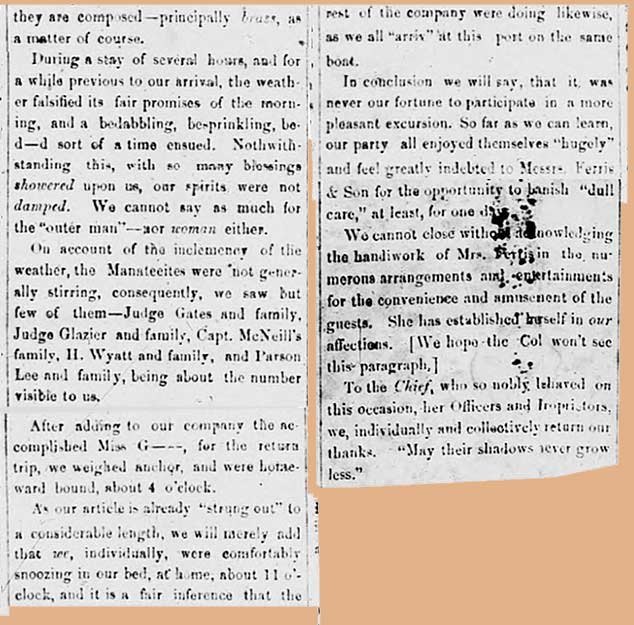 they are composed—principally brass, as
a matter of course.
During a stay of several hours, and for
a while previous to our arrival, the weath-
er falsified its fair promises of the morn-
ing, and a bedabbling, be-sprinkling, be-
d—d sort of a time ensued. Nothwith-
standing this, with so many blessings
showered upon us, our spirits were not
damped. We cannot say as much for
the "outer man"—nor woman either.
On account of the inclemency of the
weather, the Manateeites were not gener-
ally stirring, consequently, we saw but
few of them—Judge Gates and family,
Judge Glazier and family, Capt. McNeill's
family, H. Wyatt and family, and Parson
Lee and family, being about the number
visible to us.
After adding to our company the ac-
complished Miss G——, for the return
trip, we weighed anchor, and were home-
ward bound, about 4 o'clock.
As our article is already "strung out" to
a considerable length, we will merely add
that we, individually, were comfortably
snoozing in our bed, at home, about 11 o'-
clock, and it is a fair inference that the
rest of the company were doing likewise,
as we all "arriv" at this port on the same
boat.
In conclusion we will say, that it was
never our fortune to participate in a more
pleasant excursion. So far as we can learn,
our party all enjoyed themselves "hugely"
and feel greatly indebted to Messrs. Ferris
& Son for the opportunity to banish "dull
care," at least, for one day.
We cannot close without acknowledging
the handiwork of Mrs. Ferris in the nu-
merous arrangements and entertainments
for the convenience and amusement of the
guests. She has established herself in our
affections. [We hope the Col won't see
this paragraph.]
To the Chief, who so nobly behaved on
this occasion, her Officers and Proprietors,
we, individually and collectively return our
thanks. "May their shadows never grow
less."